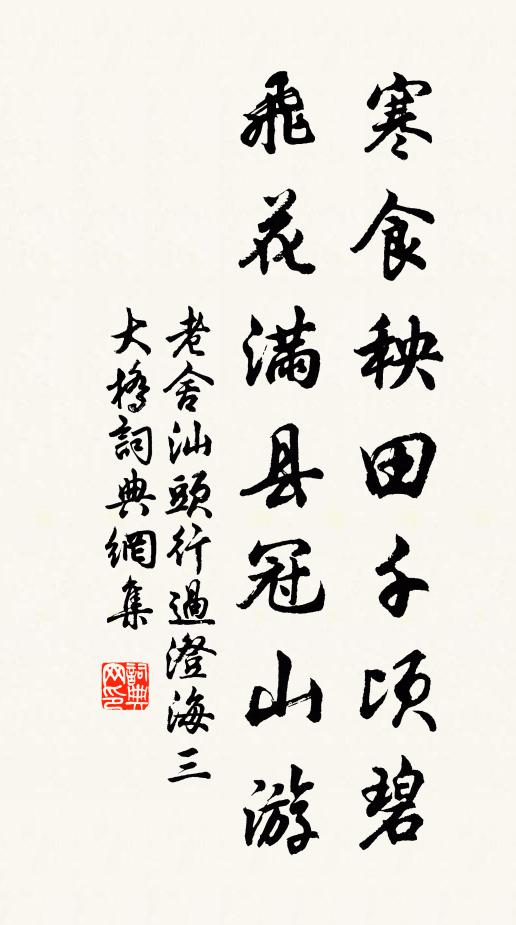 寒食秧田千顷碧
飛花滿县冠山游
老舍汕頭行過澄海三
大橋詞典網集
詞典
网印